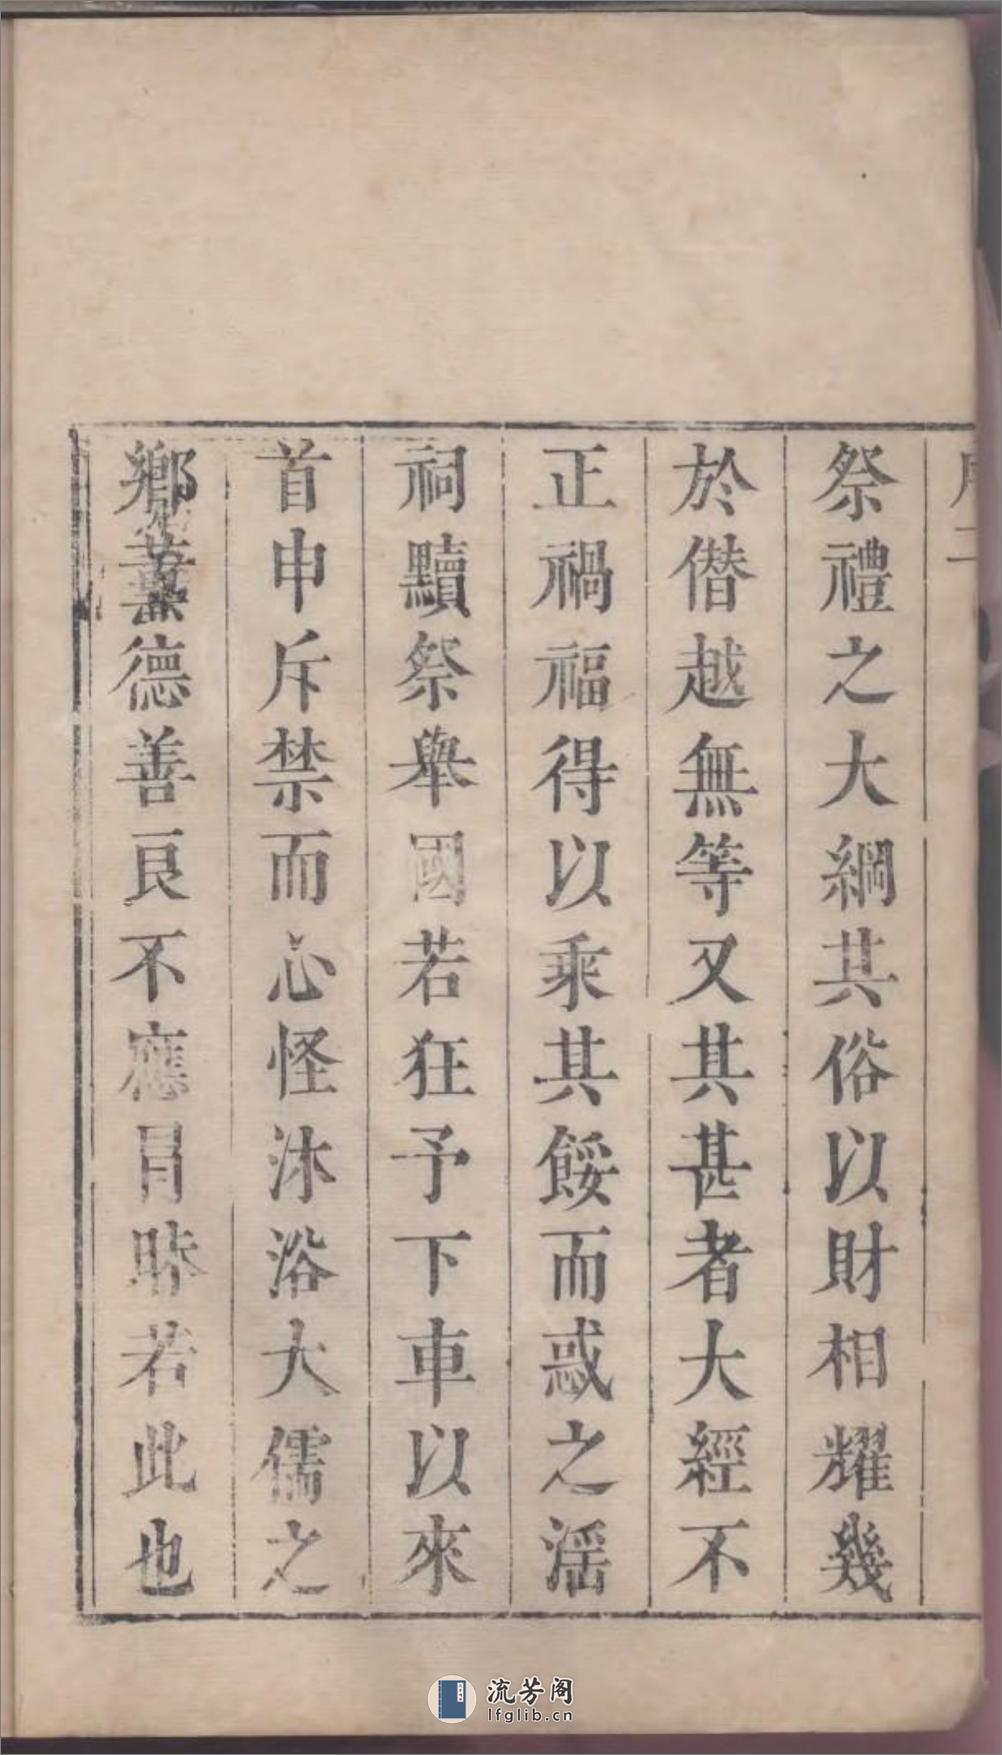 序二
祭禮之大綱其俗以財相耀幾
於僭越無等又其甚者大經不
正禍福得以乘其餒而惑之淫
祠黷祭舉國若狂予下車以來
首申斥禁而心怪沐浴大儒之
鄉薰德善良不應冐昧若此也
流芳阁
lfglib.cn